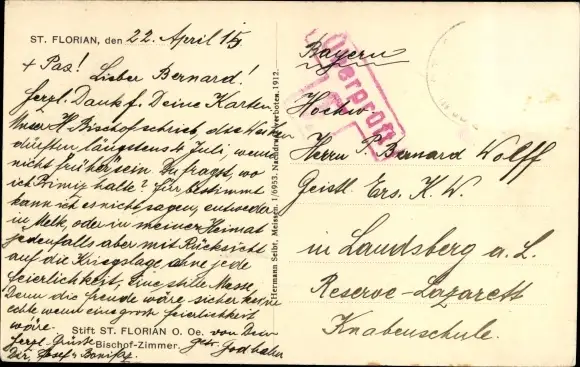 ST. FLORIAN, den 22. April 15
+ Pax!
Lieber Bernard!
Herzl. Dank f. Deine Karten.
Unser H. Bischof schrieb, die Weihen
dürften längstens 4 Juli, wenn
nicht früher sein. Du fragst, wo
ich Primiz halte? Für bestimmt
kann ich es nicht sagen, entweder
in Melk, oder in meiner Heimat
jedenfalls aber mit Rücksicht
auf die Kriegslage ohne jede
Feierlichkeit, Eine stille Messe,
Denn die Freude wäre sicher keine
echte wenn eine große Feierlichkeit
wäre.
Stift ST. FLORIAN O. Oe. von Dein
Herzl. Grüße
Bischof-Zimmer.
Dir, Josef u. Bonifaz.
Hermann Seibt, Meissen. 1/6953. Nachdruck verboten. 1912.
Überprüft
Bayern
Hochw
Herrn P. Bernard Wolff
Geistl. Ers. K. W.
in Landsberg a. L.
Reserve-Lazarett
Knabenschule.